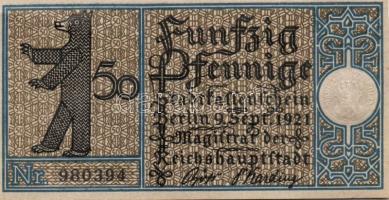 Funfzig
50 Pfennige
Stadtkassenschein
Berlin 9. Sept. 1921
Magistrat der
Reichshauptstadt
Nr. 980394